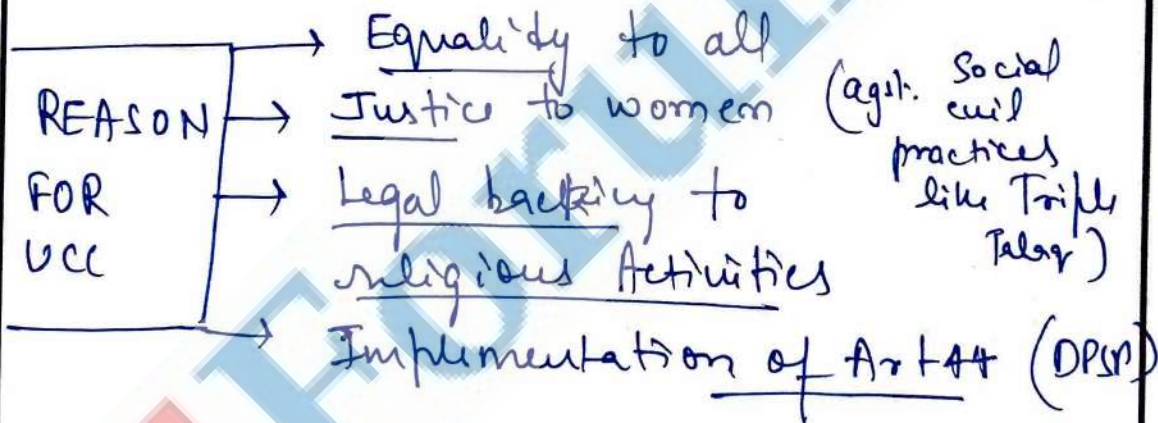 Equality to all
REASON FOR UCC
Justice to women (agst. Social evil practices like Triple Talaq)
Legal backing to
religious Activities
Implementation of Art 44 (DPSP)
Forum